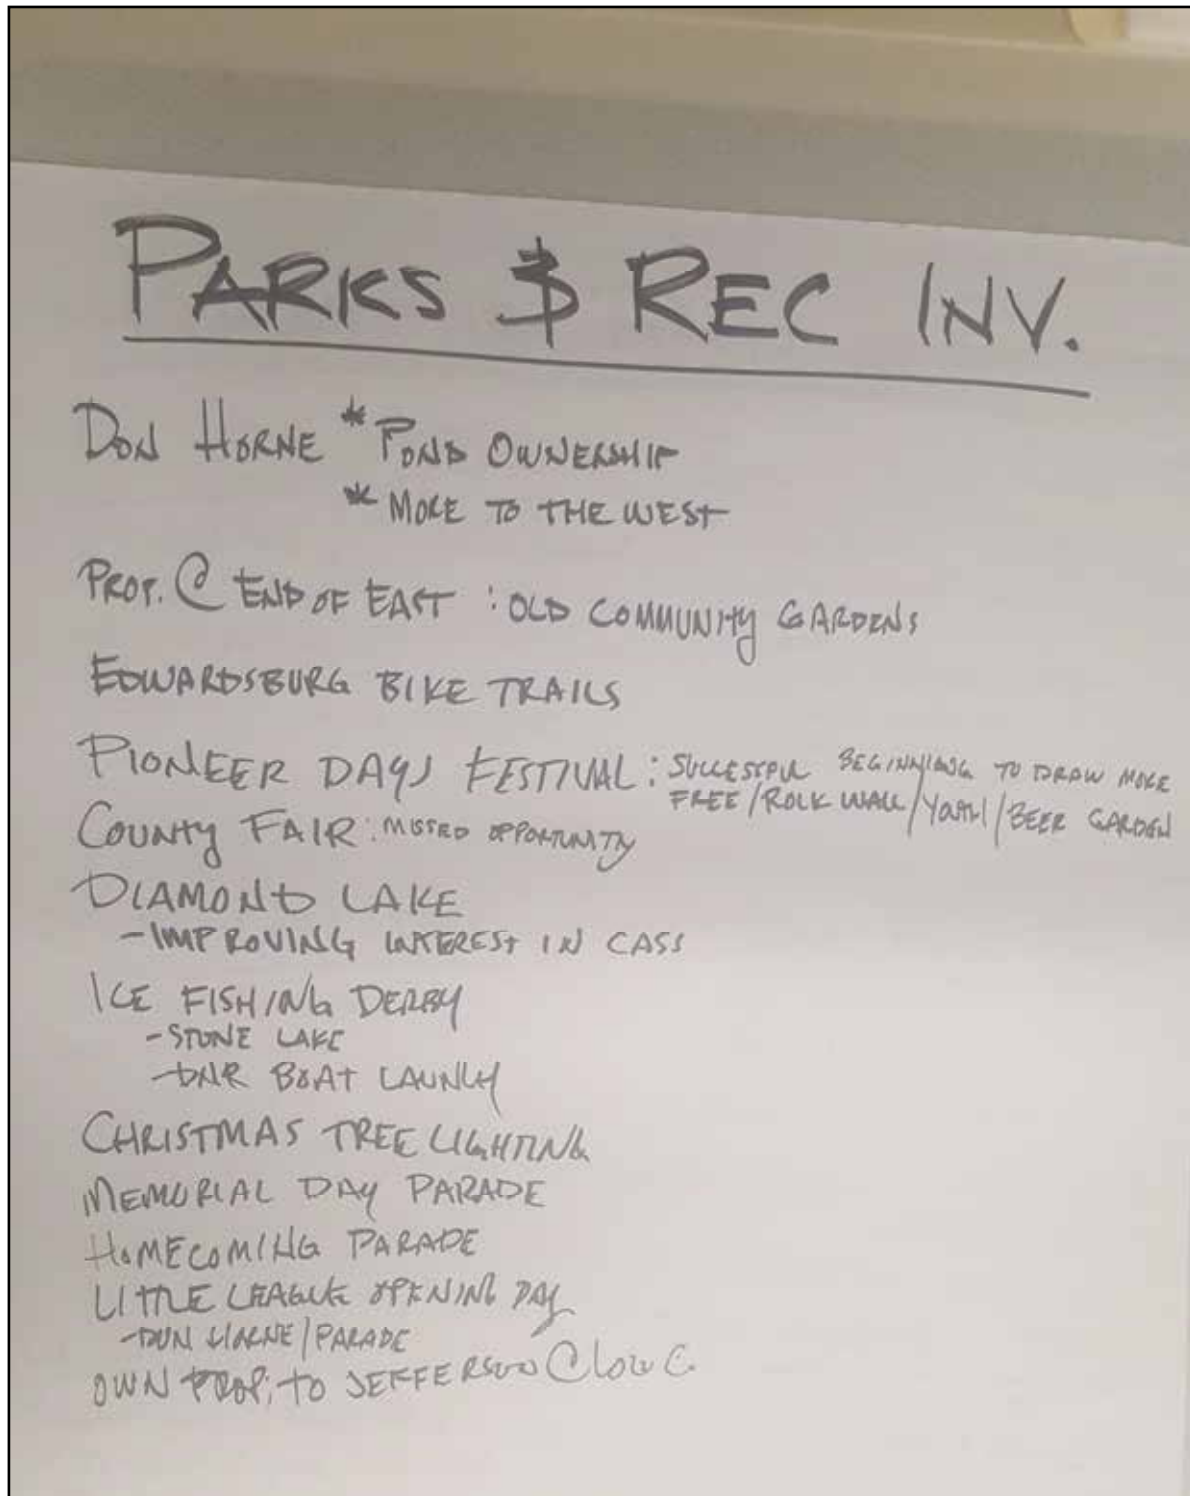 PARKS & REC INV.
DON HORNE * POND OWNERSHIP
* MORE TO THE WEST
PROP. @ END OF EAST : OLD COMMUNITY GARDENS
EDWARDSBURG BIKE TRAILS
PIONEER DAYS FESTIVAL : SUCCESSFUL BEGINNING TO DRAW MORE
FREE/ROCK WALL/YOUTH/BEER GARDEN
COUNTY FAIR : MISSED OPPORTUNITY
DIAMOND LAKE
- IMPROVING INTEREST IN CASS
ICE FISHING DERBY
- STONE LAKE
- DNR BOAT LAUNCH
CHRISTMAS TREE LIGHTING
MEMORIAL DAY PARADE
HOMECOMING PARADE
LITTLE LEAGUE OPENING DAY
- DON HORNE/PARADE
OWN PROP. TO JEFFERSON @